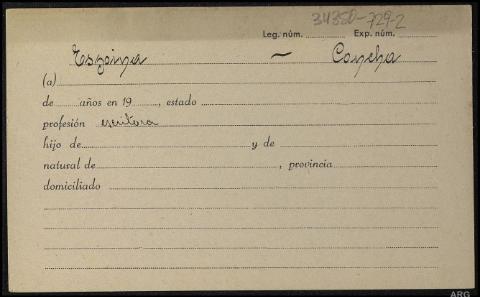 34350-729-2
Leg. núm. Exp. núm.
Espina ~ Concha
(a)
de años en 19 , estado
profesión escritora
hijo de y de
natural de , provincia
domiciliado
ARG